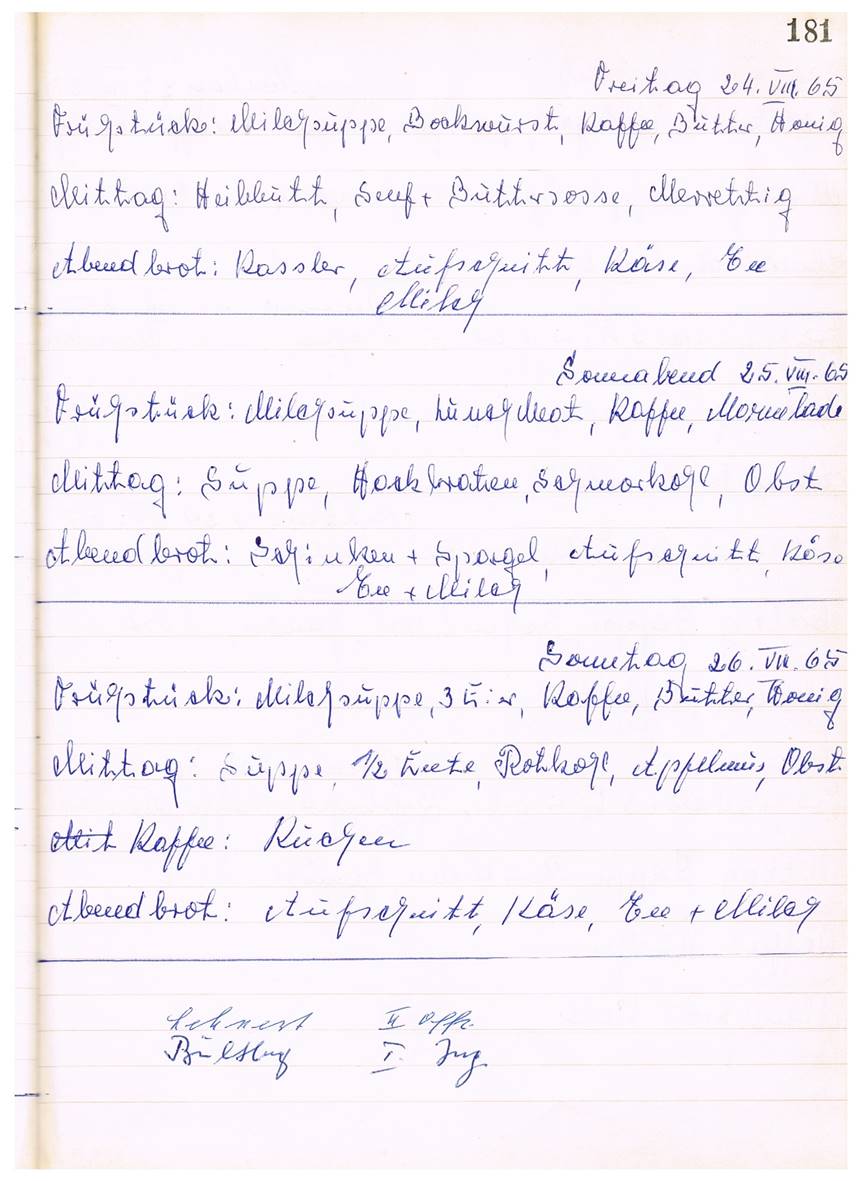 181
Freitag 24. VIII. 65
Frühstück: Milchsuppe, Bockwurst, Kaffee, Butter, Honig
Mittag: Heilbutt, Senf + Buttersosse, Merrettig
Abendbrot: Kassler, Aufschnitt, Käse, Tee
Milch
Sonnabend 25. VIII. 65
Frühstück: Milchsuppe, Kaffee, Marmelade
Mittag: Suppe, Hackbraten, Schmorkohl, Obst
Abendbrot: Schinken + Spargel, Aufschnitt, Käse
Tee + Milch
Sonntag 26. VIII. 65
Frühstück: Milchsuppe, 3 Eier, Kaffee, Butter, Honig
Mittag: Suppe, 1/2 Ente, Rotkohl, Apfelmus, Obst
Mit Kaffee: Kuchen
Abendbrot: Aufschnitt, Käse, Tee + Milch
Lehnert II Offz.
I. Ing.